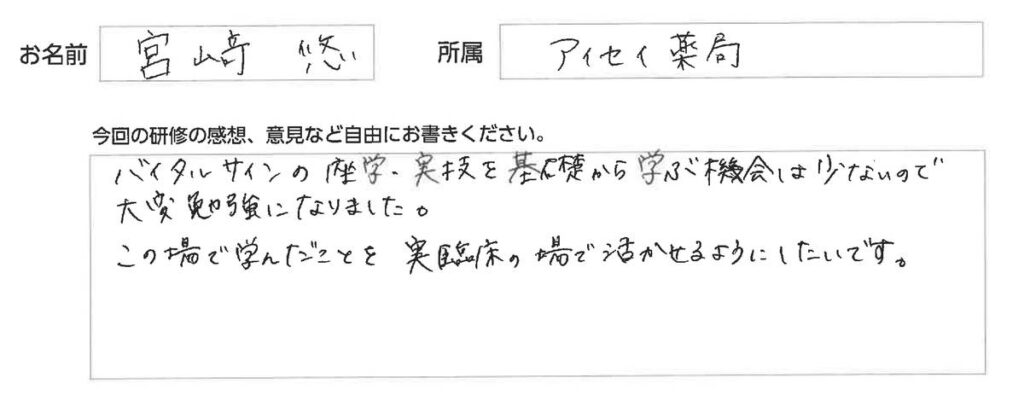 お名前 宮﨑 悠 所属 アイセイ薬局
今回の研修の感想、意見など自由にお書きください。
バイタルサインの座学・実技を基礎から学ぶ機会は少ないので
大変勉強になりました。
この場で学んだことを実臨床の場で活かせるようにしたいです。